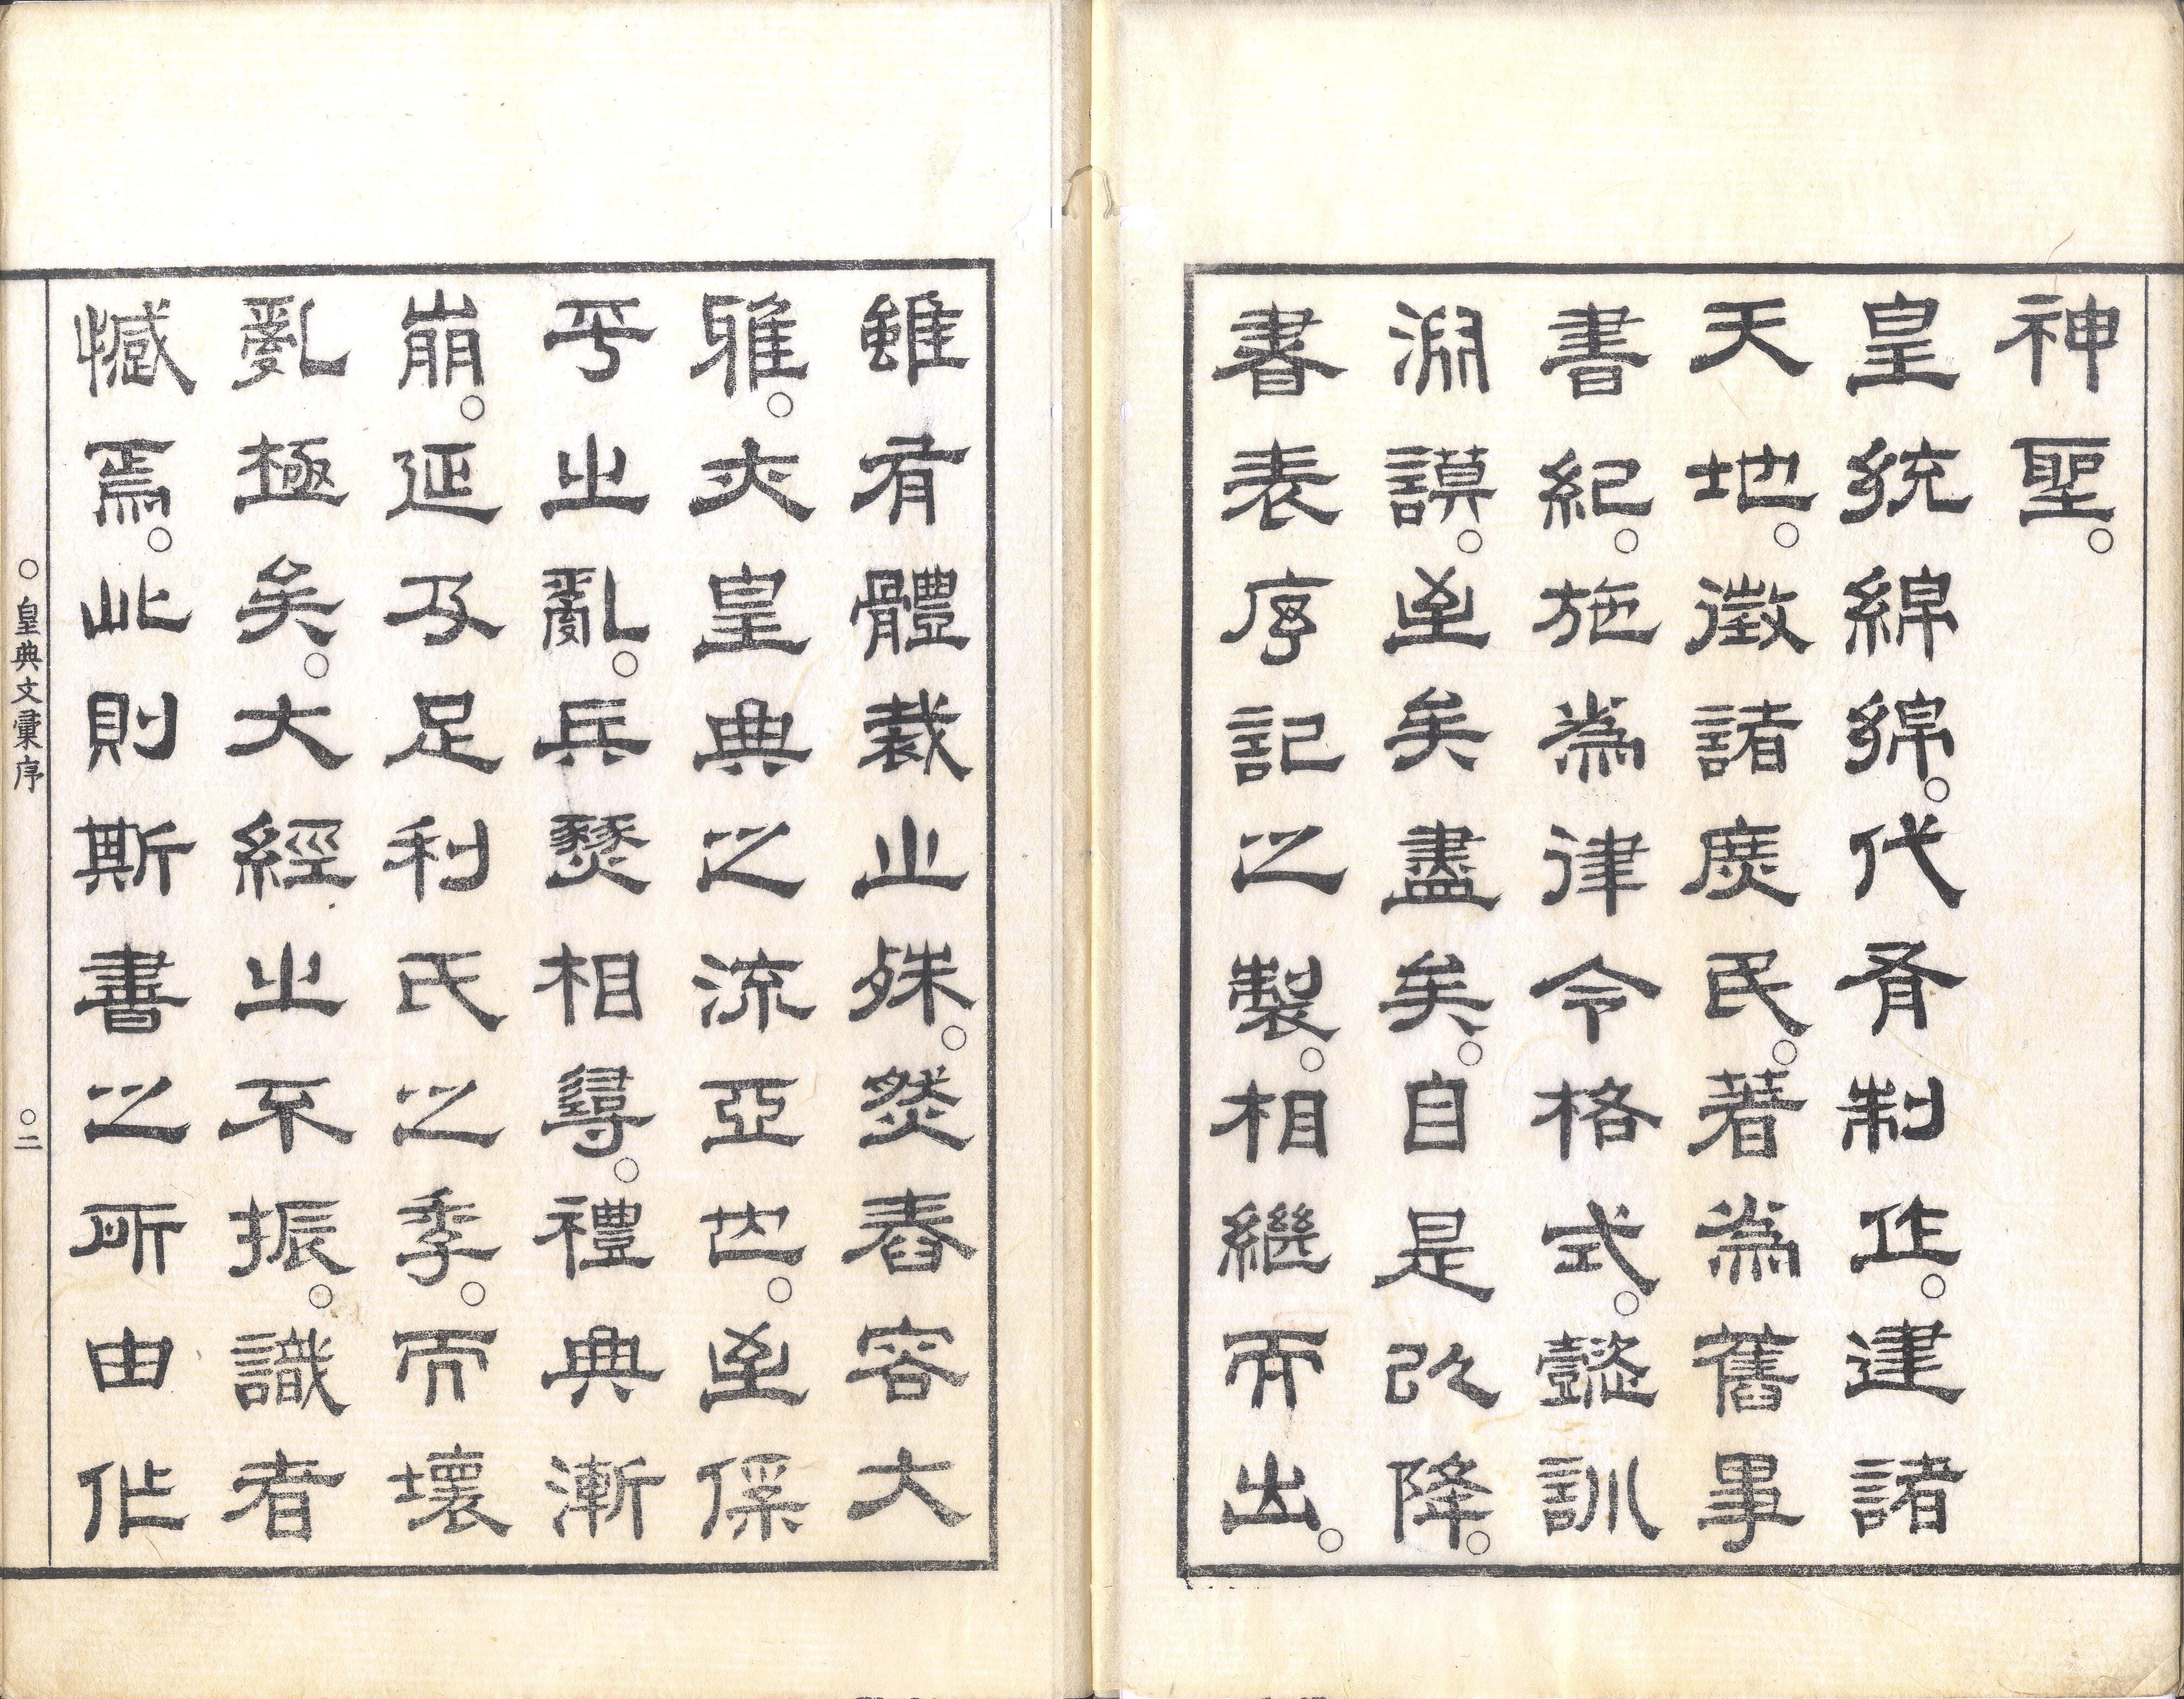 神聖。
皇統綿綿。代有制作。建諸
天地。徵諸庶民。著為舊事
書紀。施為律令格式。懿訓
淵謨。至矣盡矣。自是以降。
書表序記之製。相繼而出。
雖有體裁之殊。然舂容大
雅。夾皇典之流亞也。至保
平之亂。兵燹相尋。禮典漸
崩。延及足利氏之季。而壞
亂極矣。大經之不振。識者
憾焉。此則斯書之所由作
○皇典文彙序 ○二